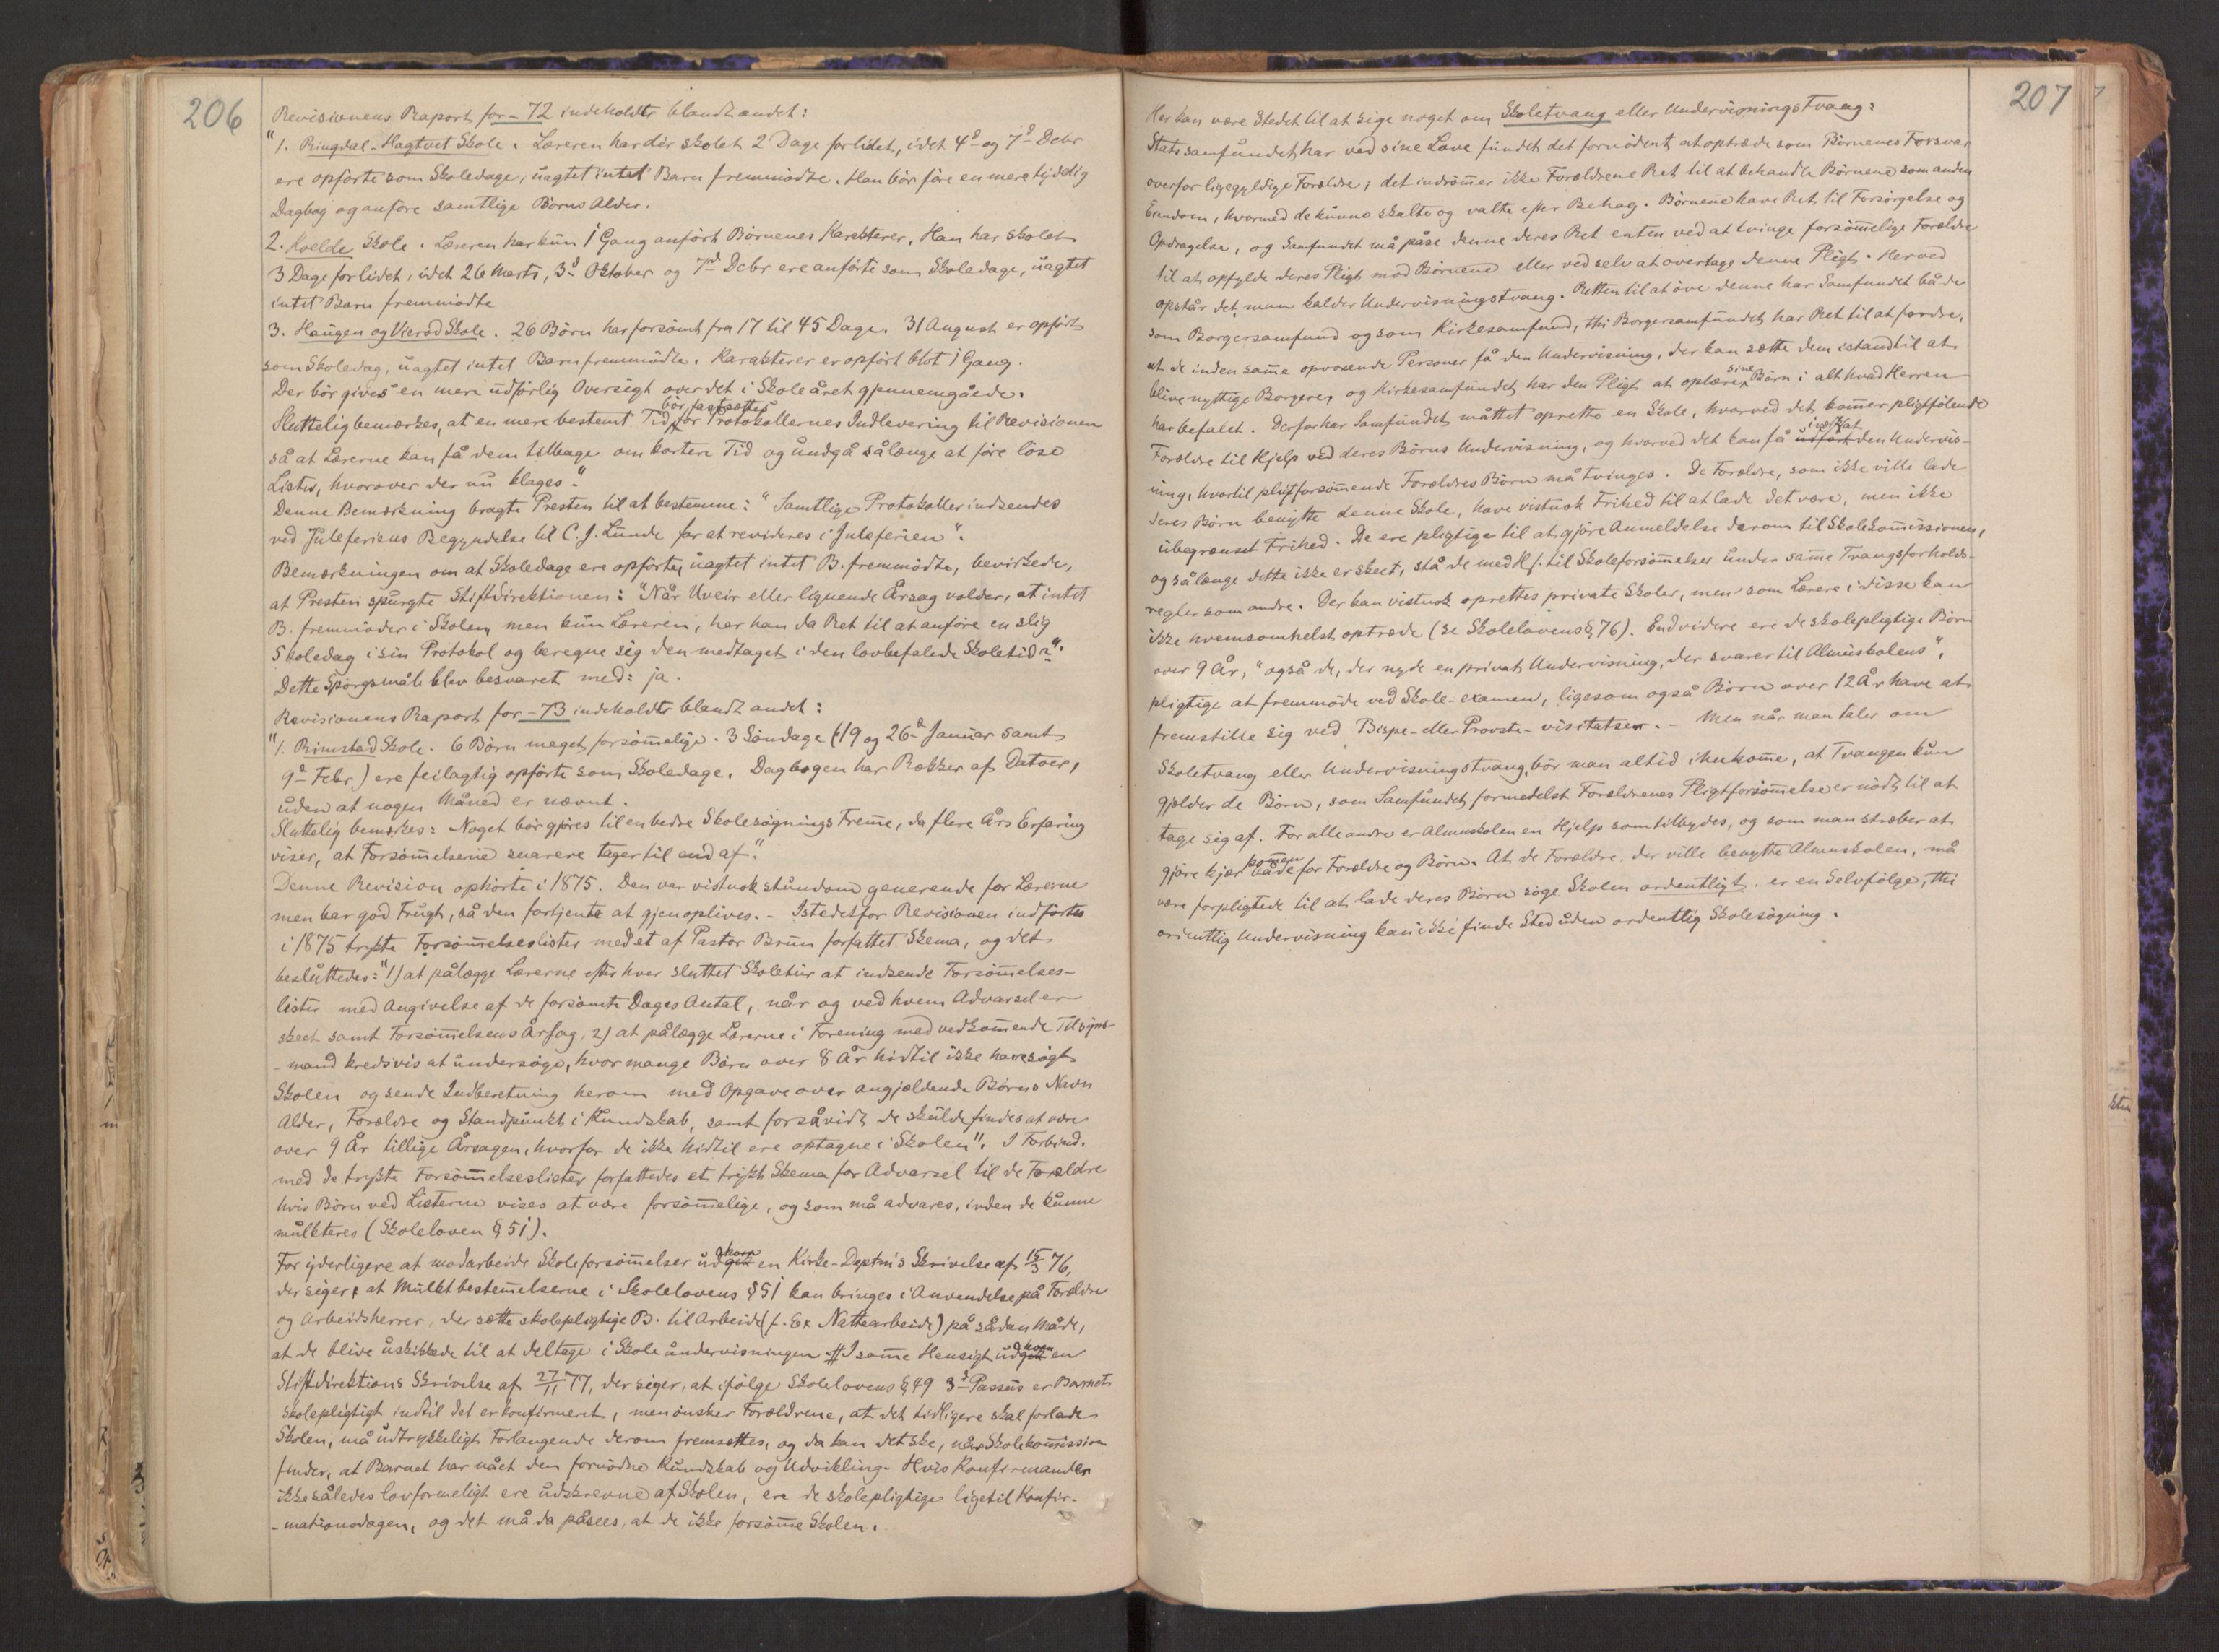 206
Revisionens Raport for -72 indeholdt blandt andet:
"1. Ringdal-Hagtvet Skole. Læreren har der skolet 2 Dage forlidet, idet 4de og 7de Decbr
ere opførte som Skoledage, uagtet intet Barn fremmødte. Han bør føre en mere tydelig
Dagbog og anføre samtlige Børns Alder.
2. Kvelde Skole. Læreren har kun 1 Gang anført Børnenes Karakterer. Han har skolet
3 Dage forlidet, idet 26 Marts, 3die Oktober og 7de Decbr ere anførte som Skoledage, uagtet
intet Barn fremmødte
3. Haugen og Vierød Skole. 26 Børn har forsømt fra 17 til 45 Dage. 31 August er opført
som Skoledag, uagtet intet Barn fremmødte. Karakterer er opført blot 1 Gang.
Der bør gives en mere udførlig Oversigt over det i Skoleåret gjennemgåede.
Sluttelig bemærkes, at en mere bestemt Tid bør fastsættes for Protokollernes Indlevering til Revisionen
så at Lærerne kan få dem tilbage om kortere Tid og undgå sålænge at føre løse
Lister, hvorover der nu klages".
Denne Bemærkning bragte Presten til at bestemme: "Samtlige Protokoller indsendes
ved Juleferiens Begyndelse til C. J. Lunde for at revideres i Juleferien".
Bemærkningen om at Skoledage ere opførte, uagtet intet B. fremmødte, bevirkede,
at Presten spurgte Stiftdirektionen: "Når Uveir eller lignende Årsag volder, at intet
B. fremmøder i Skolen, men kun Læreren, har han da Ret til at anføre en slig
Skoledag i sin Protokol og beregne sig den medtaget i den lovbefalede Skoletid?".
Dette Spørgsmål blev besvaret med: ja.
Revisionens Raport for -73 indeholdt blandt andet:
"1. Rimstad Skole. 6 Børn meget forsømmelige. 3 Søndage (19 og 26de Januar samt
9de Febr.) ere feilagtig opførte som Skoledage. Dagbogen har Rækker af Datoer,
uden at nogen Måned er nævnt.
Sluttelig bemærkes: Noget bør gjøres til en bedre Skolesøgnings Fremme, da flere Års Erfaring
viser, at Forsømmelserne snarere tager til end af".
Denne Revision ophørte i 1875. Den var vistnok stundom generende for Lærerne
men bar god Frugt, så den fortjente at gjenoplives. - Istedetfor Revisionen indførtes
i 1875 trykte Forsømmelseslister med et af Pastor Brun forfattet Skema, og det
besluttedes: "1) at pålægge Lærerne efter hver sluttet Skoletur at indsende Forsømmelses-
lister med Angivelse af de forsømte Dages Antal, når og ved hvem Advarsel er
skeet samt Forsømmelsens Årsag, 2) at pålægge Lærerne i Forening med vedkommende Tilsyns-
-mand kredsvis at undersøge, hvor mange Børn over 8 År hidtil ikke have søgt
Skolen og sende Indberetning herom med Opgave over angjældende Børns Navn
Alder, Forældre og Standpunkt i Kundskab, samt forsåvidt de skulde findes at være
over 9 År tillige Årsagen, hvorfor de ikke hidtil ere optagne i Skolen". I Forbind.
med de trykte Forsømmelseslister forfattedes et trykt Skema for Advarsel til de Forældre
hvis Børn ved Listerne vises at være forsømmelige, og som må advares, inden de kunne
mulkteres (Skoleloven § 51).
For yderligere at modarbeide Skoleforsømmelser udkom en Kirke-Deptm's Skrivelse af 15/3 76,
der siger, at Mulktbestemmelserne i Skolelovens § 51 kan bringes i Anvendelse på Forældre
og Arbeidsherrer, der sætte skolepligtige B. til Arbeide (f. Ex Nattearbeide) på sådan Måde,
at de blive uskikkede til at deltage i Skoleundervisningen. # I samme Hensigt udkom en
Stiftdirektions Skrivelse af 27/11 77, der siger, at ifølge Skolelovens § 49 3die Passus er Barnet
skolepligtigt indtil det er konfirmeret, men ønsker Forældrene, at det tidligere skal forlade
Skolen, må udtrykkeligt Forlangende derom fremsættes, og da kan det ske, når Skolekommission
finder, at Barnet har nået den fornødne Kundskab og Udvikling. Hvis Konfirmander
ikke således lovformeligt ere udskrevne af Skolen, ere de skolepligtige ligetil Konfir-
-mationsdagen, og det må da påsees, at de ikke forsømme Skolen.
207
Her kan være Stedet til at sige noget om Skoletvang eller Undervisningstvang:
Statssamfundet har ved sine Love fundet det fornødent at optræde som Børnenes Forsvar
overfor ligegyldige Forældre; det indrømmer ikke Forældrene Ret til at behandle Børnene som anden
Eiendom, hvormed de kunne skalte og valte efter Behag. Børnene have Ret til Forsørgelse og
Opdragelse, og Samfundet må påse denne deres Ret enten ved at tvinge forsømmelige Forældre
til at opfylde deres Pligt mod Børnene eller ved selv at overtage denne Pligt. Herved
opstår det, man kalder Undervisningstvang. Retten til at øve denne har Samfundet både
som Borgersamfund og som Kirkesamfund, thi Borgersamfundet har Ret til at fordre,
at de inden samme opvoxende Personer få den Undervisning, der kan sætte dem istand til at
blive nyttige Borgere, og Kirkesamfundet har den Pligt at oplære sine Børn i alt hvad Herren
har befalet. Derfor har Samfundet måttet oprette en Skole, hvorved det kommer pligtfølende
Forældre til Hjelp ved deres Børns Undervisning, og hvorved det kan få iværksat den Undervis-
ning, hvortil pligtforsømmende Forældres Børn må tvinges. De Forældre, som ikke ville lade
deres Børn benytte denne Skole, have vistnok Frihed til at lade det være, men ikke
ubegrænset Frihed. De ere pligtige til at gjøre Anmeldelse derom til Skolekommissionen,
og sålænge dette ikke er skeet, stå de med H. t. til Skoleforsømmelser under samme Tvangsforholds-
regler som andre. Der kan vistnok oprettes private Skoler, men som Lærere i disse kan
ikke hvemsomhelst optræde (se Skolelovens § 76). Endvidere ere de skolepligtige Børn
over 9 År, "også de, der nyde en privat Undervisning, der svarer til Almuskolens",
pligtige at fremmøde ved Skole-examen, ligesom også Børn over 12 År have at
fremstille sig ved Bispe- eller Provste-visitatser. - Men når man taler om
Skoletvang eller Undervisningstvang, bør man altid ihukomme, at Tvangen kun
gjælder de Børn, som Samfundet formedelst Forældrenes Pligtforsømmelse er nødt til at
tage sig af. For alle andre er Almuskolen en Hjelp som tilbydes, og som man stræber at
gjøre kjær både for Forældre og Børn. At de Forældre, der ville benytte Almuskolen, må
være forpligtede til at lade deres Børn søge Skolen ordentligt, er en Selvfølge, thi
ordentlig Undervisning kan ikke finde Sted uden ordentlig Skolesøgning.